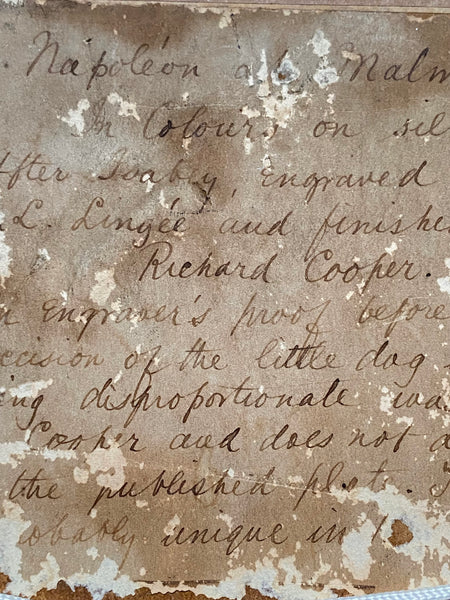 Napoléon at Malm
In Colours on sil
After Isabey, engraved
L. Lingée and finishe
Richard Cooper.
Engraver's proof before
cision of the little dog
ing disproportionate was
Cooper and does not a
the published plate. T
obably unique in